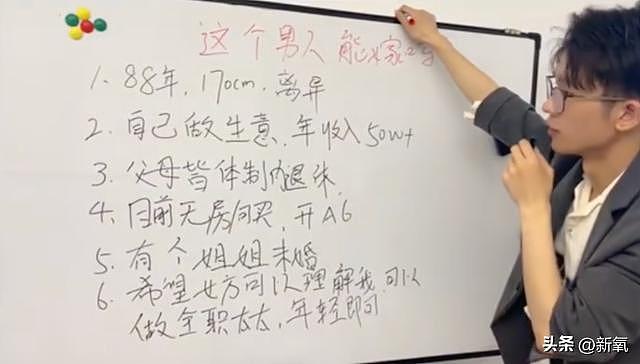 这个男人 能嫁吗
1、88年，170cm，离异
2、自己做生意，年收入50w+
3、父母皆体制内退休
4、目前无房可买，开A6
5、有个姐姐未婚
6、希望女方可以理解我，可以
做全职太太，年轻即可
头条 @新氧